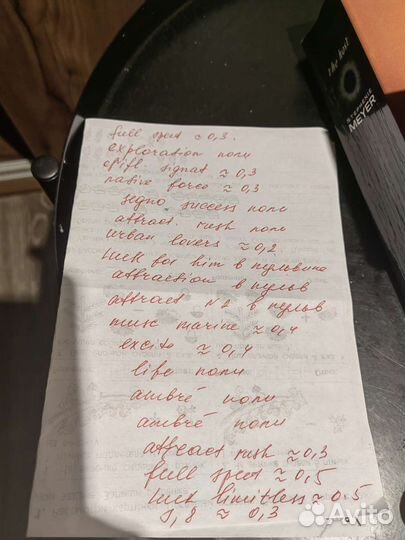 full speed ≈ 0,3.
exploration полн
signat ≈ 0,3
native force ≈ 0,3
segno success полн
attract. rush полн
urban lovers ≈ 0,2
luck for him в пульвике
attraction в пульв
attract N2 в пульв
musc marine ≈ 0,4
excite ≈ 0,4
life полн
ambré полн
ambré полн
attract rush ≈ 0,3
full speed ≈ 0,5
luck limitless ≈ 0.5
≈ 0,3
the host
STEPHENIE
MEYER
Avito